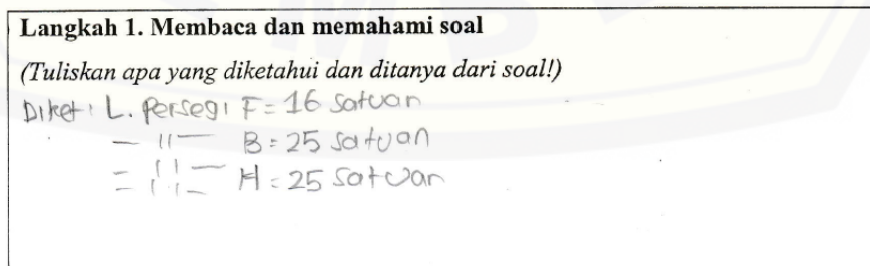 Langkah 1. Membaca dan memahami soal
(Tuliskan apa yang diketahui dan ditanya dari soal!)
Diket : L. Persegi F = 16 satuan
— 11 — B = 25 satuan
— 11 — H = 25 satuan